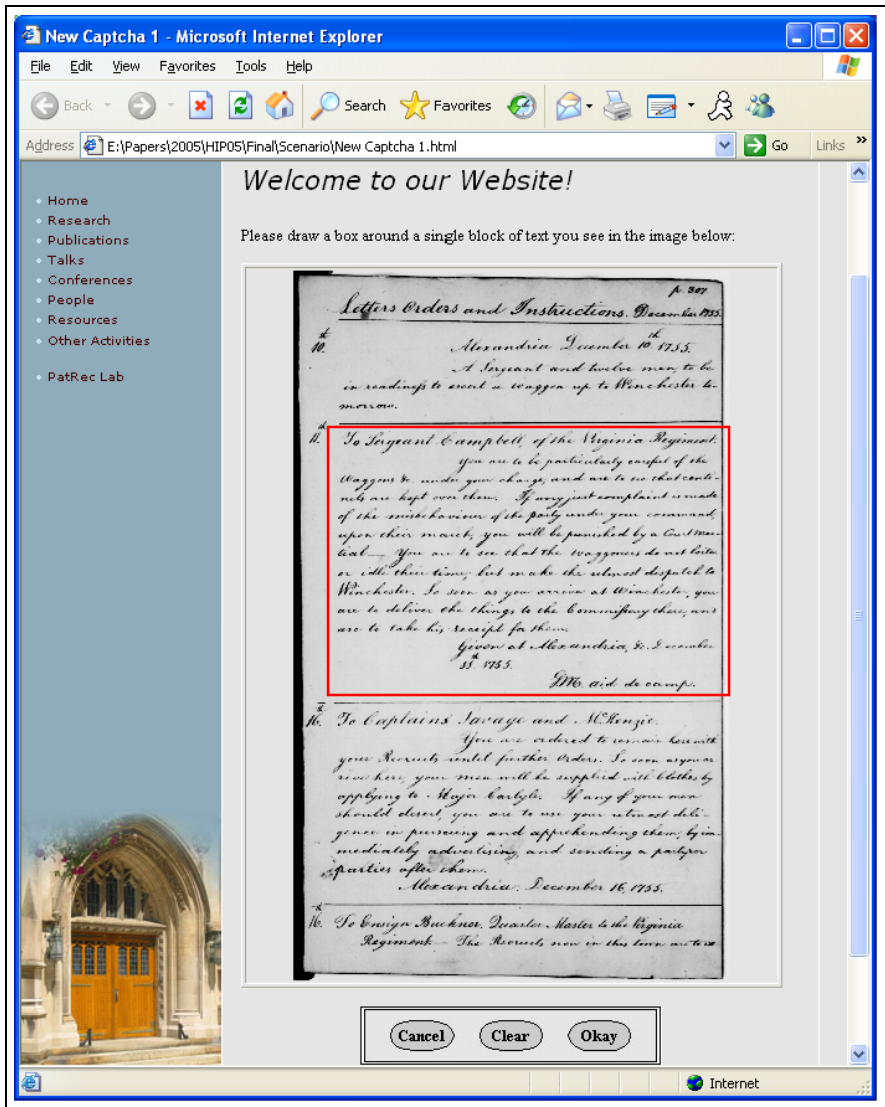 New Captcha 1 - Microsoft Internet Explorer
File Edit View Favorites Tools Help
Back Search Favorites
Address E:\Papers\2005\HIP05\Final\Scenario\New Captcha 1.html Go Links »
Home
Research
Publications
Talks
Conferences
People
Resources
Other Activities
PatRec Lab
Welcome to our Website!
Please draw a box around a single block of text you see in the image below:
p. 307
Letters Orders and Instructions. December 1755.
10. Alexandria December 10th 1755.
A Sergeant and twelve men, to be
in readiness to escort a waggon up to Winchester to-
morrow.
11. To Sergeant Campbell, of the Virginia Regiment.
You are to be particularly careful of the
Waggons &c. under your charge, and are to see that centi-
nels are kept over them. If any just complaint is made
of the misbehaviour of the party under your command,
upon their march, you will be punished by a Court Mar-
tial — You are to see that the waggoners do not loiter
or idle their time, but make the utmost despatch to
Winchester. So soon as you arrive at Winchester, you
are to deliver the things to the Commissary there, and
are to take his receipt for them.
Given at Alexandria, &c. December
1755.
aid de camp.
16. To Captains Savage and McKenzie.
You are ordered to remain here with
your Recruits until further Orders. So soon as you ar
rive here, your men will be supplied with Clothes by
applying to Major Carlyle. If any of your men
should desert, you are to use your utmost deli-
gence in pursuing and apprehending them, by im-
mediately advertising, and sending a party or
parties after them.
Alexandria. December 16, 1755.
16. To Ensign Buckner. Quarter Master to the Virginia
Regiment — The Recruits now in this town are to
Cancel Clear Okay
Internet